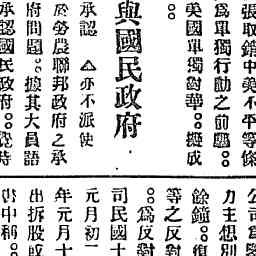 張取銷中美不平等條
爲單獨行動之前題。
美國單獨對華。擬成
。
與國民政府
承認 △亦不派使
於勞農聯邦政府之承
府問題。據其大員語
承認國民政府。
公司爲
力主想別
餘鐘。復
等之反對
。爲反對
司民國十
元月初二
年元月十
出拆股取
書中稱。